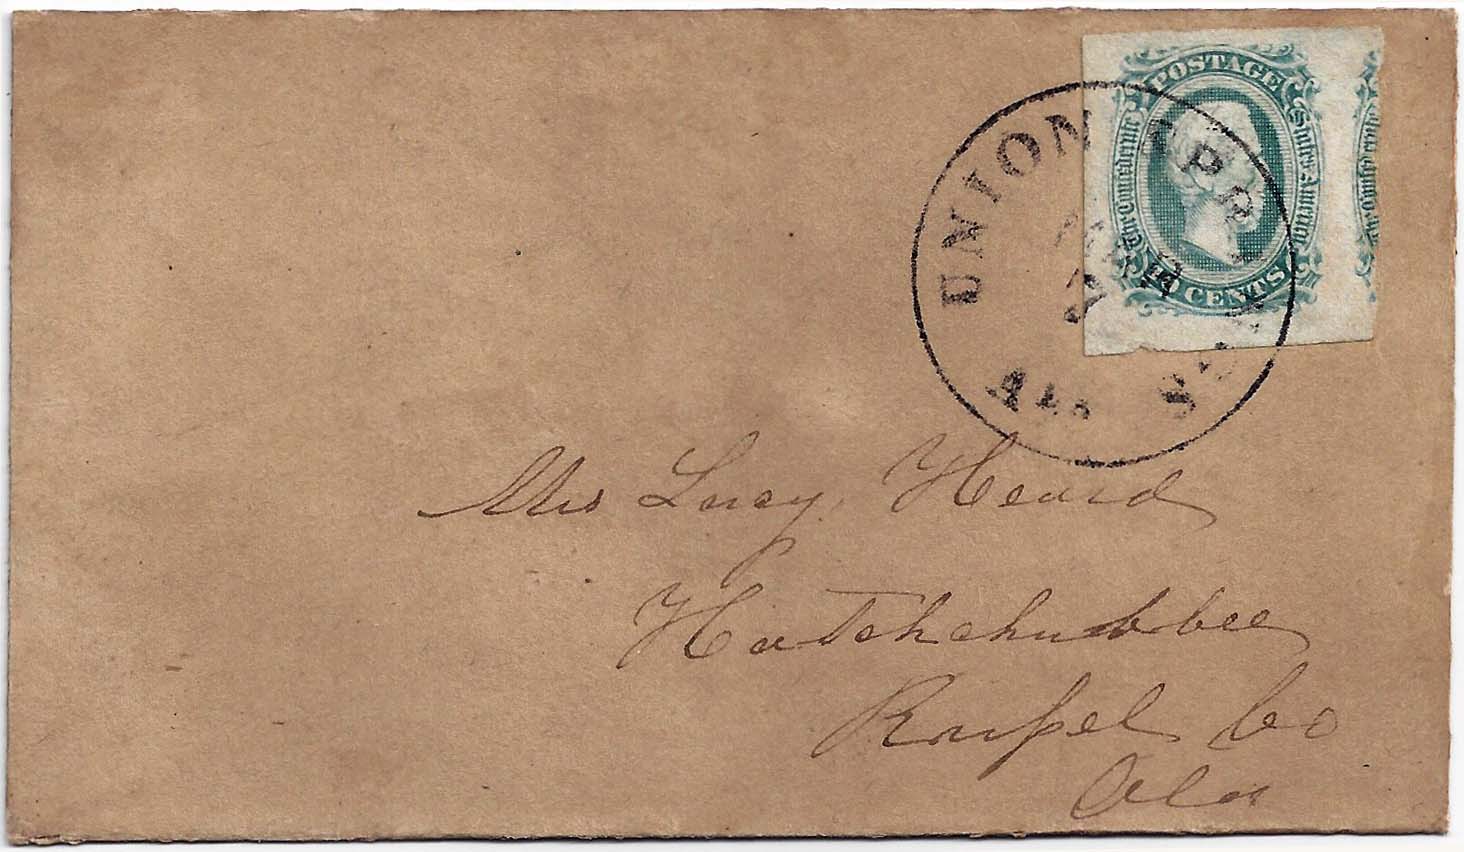 POSTAGE
The Confederate States America
10 CENTS
UNION SPRINGS
Ala
Mrs Lucy, Heard
Hatchchubbee
Rußel Co
Ala